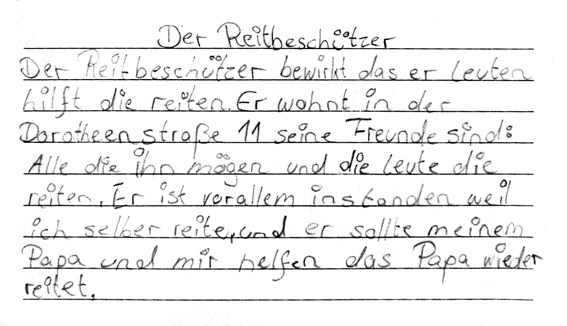 Der Reitbeschützer
Der Reitbeschützer bewirkt das er leuten
hilft die reiten. Er wohnt in der
Dorotheenstraße 11 seine Freunde sind:
Alle die ihn mögen und die leute die
reiten. Er ist vorallem instanden weil
ich selber reite, und er sollte meinem
Papa und mir helfen das Papa wieder
reitet.